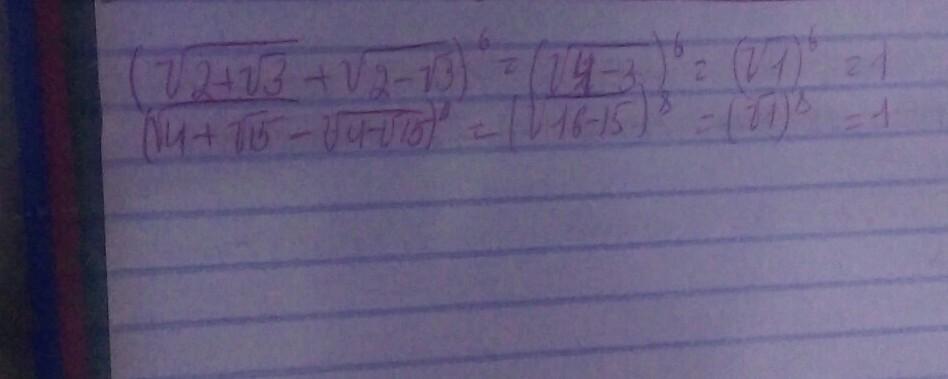 (√(2+√3) + √(2-√3))⁶ = (√(4-3))⁶ = (√1)⁶ = 1
(√(4+√15) - √(4-√15))⁸ = (√(16-15))⁸ = (√1)⁸ = 1